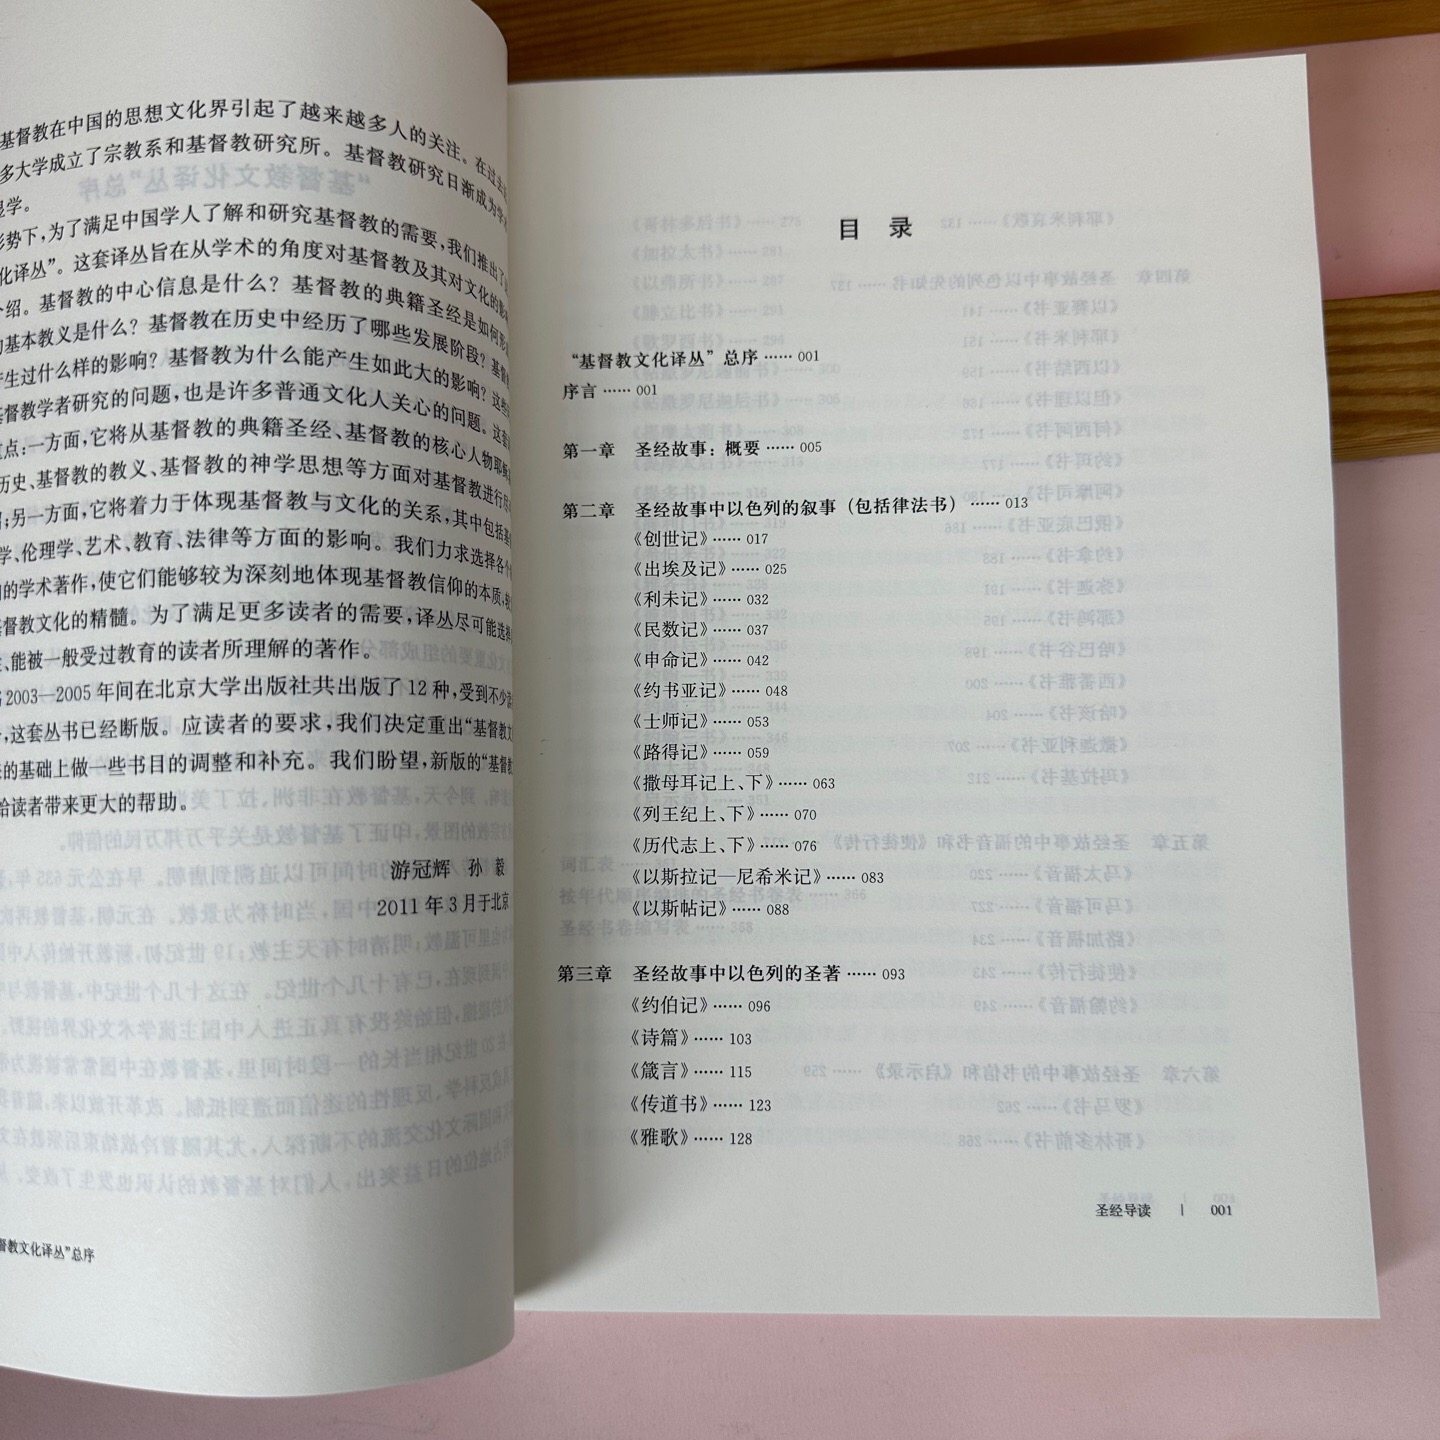 基督教在中国的思想文化界引起了越来越多人的关注。在过去
多大学成立了宗教系和基督教研究所。基督教研究日渐成为学
显学。
形势下,为了满足中国学人了解和研究基督教的需要,我们推出了
化译丛”。这套译丛旨在从学术的角度对基督教及其对文化的影
介绍。基督教的中心信息是什么?基督教的典籍圣经是如何形
的基本教义是什么?基督教在历史中经历了哪些发展阶段?基督
产生过什么样的影响?基督教为什么能产生如此大的影响?这些
基督教学者研究的问题,也是许多普通文化人关心的问题。这套
重点:一方面,它将从基督教的典籍圣经、基督教的核心人物耶稣
历史、基督教的教义、基督教的神学思想等方面对基督教进行
;另一方面,它将着力于体现基督教与文化的关系,其中包括基
学、伦理学、艺术、教育、法律等方面的影响。我们力求选择各个
的学术著作,使它们能够较为深刻地体现基督教信仰的本质,
基督教文化的精髓。为了满足更多读者的需要,译丛尽可能选择
、能被一般受过教育的读者所理解的著作。
2003—2005年间在北京大学出版社共出版了12种,受到不少
,这套丛书已经断版。应读者的要求,我们决定重出“基督教文
的基础上做一些书目的调整和补充。我们盼望,新版的“基督教
给读者带来更大的帮助。
游冠辉 孙毅
2011年3月于北京
督教文化译丛”总序
目 录
“基督教文化译丛”总序 …… 001
序言 …… 001
第一章 圣经故事:概要 …… 005
第二章 圣经故事中以色列的叙事(包括律法书) …… 013
《创世记》…… 017
《出埃及记》…… 025
《利未记》…… 032
《民数记》…… 037
《申命记》…… 042
《约书亚记》…… 048
《士师记》…… 053
《路得记》…… 059
《撒母耳记上、下》…… 063
《列王纪上、下》…… 070
《历代志上、下》…… 076
《以斯拉记—尼希米记》…… 083
《以斯帖记》…… 088
第三章 圣经故事中以色列的圣著 …… 093
《约伯记》…… 096
《诗篇》…… 103
《箴言》…… 115
《传道书》…… 123
《雅歌》…… 128
圣经导读 | 001